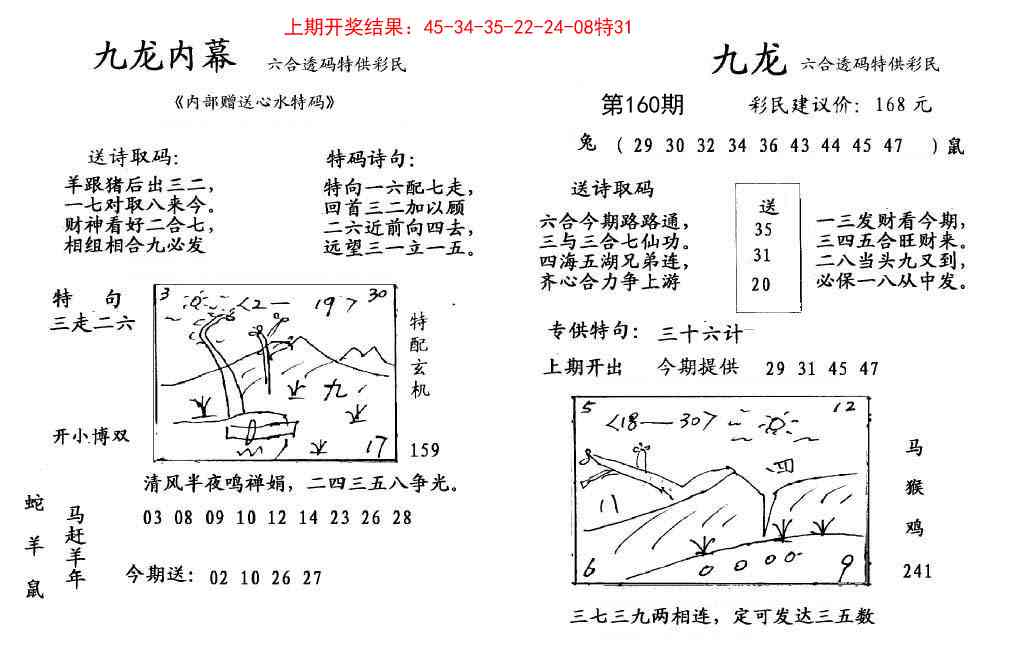 上期开奖结果：45-34-35-22-24-08特31
九龙内幕 六合透码特供彩民
《内部赠送心水特码》
送诗取码：
羊跟猪后出三二，
一七对取八来今。
财神看好二合七，
相组相合九必发
特码诗句：
特向一六配七走，
回首三二加以顾
二六近前向四去，
远望三一立一五。
特 句
三走二六
开小博双
3 <2—19> 30
九
17
特配玄机
159
清风半夜鸣禅娟，二四三五八争光。
蛇羊鼠
马赶羊年
03 08 09 10 12 14 23 26 28
今期送：02 10 26 27
九龙 六合透码特供彩民
第160期 彩民建议价：168元
兔（29 30 32 34 36 43 44 45 47 ）鼠
送诗取码
六合今期路路通，
三与三合七仙功。
四海五湖兄弟连，
齐心合力争上游
送
35
31
20
一三发财看今期，
三四五合旺财来。
二八当头九又到，
必保一八从中发。
专供特句：三十六计
上期开出 今期提供 29 31 45 47
5 <18—30> 12
八 四
6 9
马
猴
鸡
241
三七三九两相连，定可发达三五数